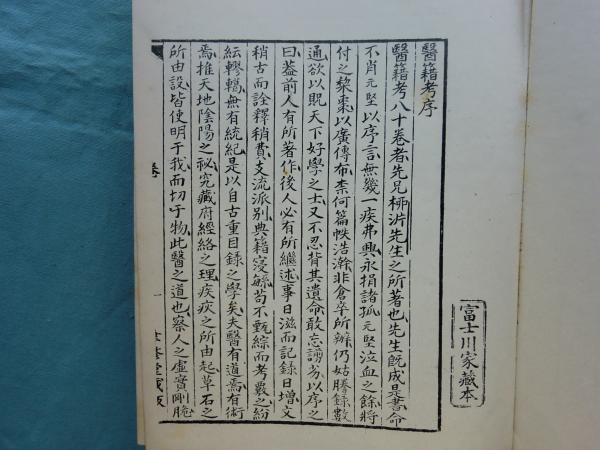 富士川家藏本
醫籍考序
醫籍考八十卷者先兄柳沜先生之所著也先生旣成是書命
不肖元堅以序言無幾一疾弗興永捐諸孤元堅泣血之餘將
付之棃棗以廣傳布柰何篇帙浩瀚非倉卒所辦仍姑謄錄數
通欲以貺天下好學之士又不忍背其遺命敢忘謭劣以序之
曰葢前人有所著作後人必有所繼述事日滋而記錄日增文
稍古而詮釋稍費支流派別典籍寖繇苟不甄綜而考覈之紛
紜轇轕無有統紀是以自古重目錄之學矣夫醫有道焉有術
焉推天地陰陽之祕究藏府經絡之理疾疢之所由起草石之
所由設皆使明于我而切于物此醫之道也察人之虛實剛脆
一